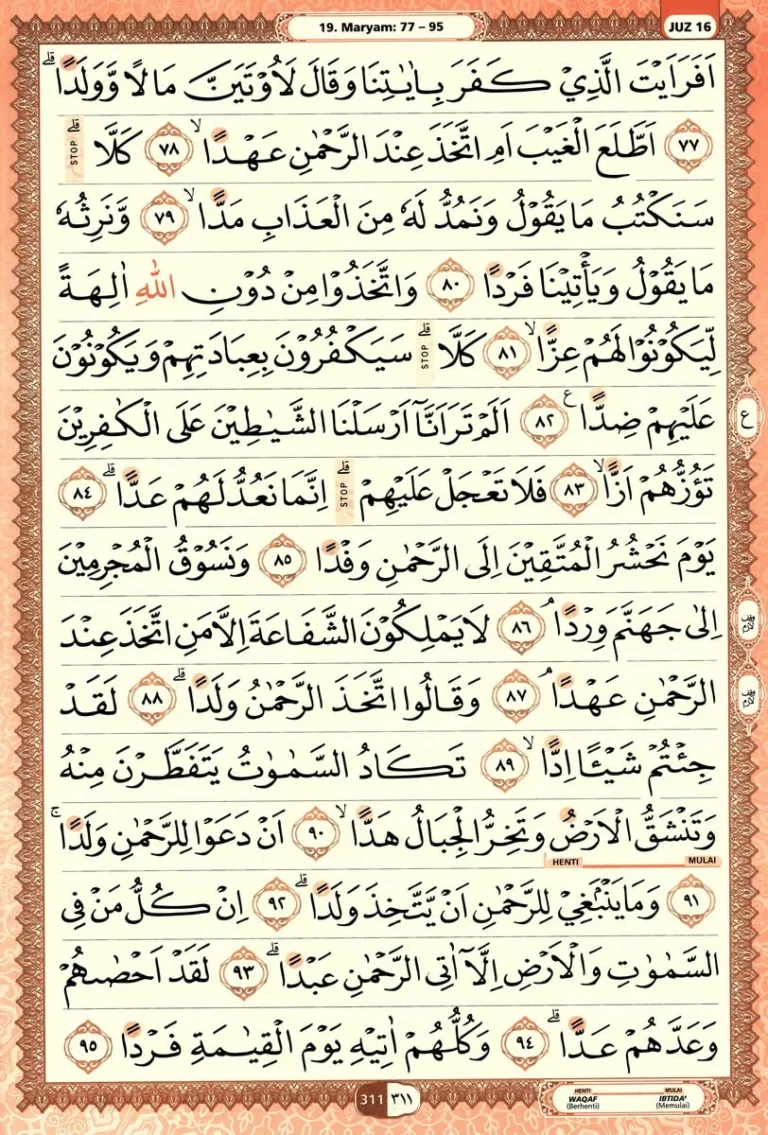 19. Maryam: 77 – 95
JUZ 16
اَفَرَاَيْتَ الَّذِيْ كَفَرَ بِاٰيٰتِنَا وَقَالَ لَاُوْتَيَنَّ مَالًا وَّوَلَدًاۗ
٧٧ اَطَّلَعَ الْغَيْبَ اَمِ اتَّخَذَ عِنْدَ الرَّحْمٰنِ عَهْدًاۙ ٧٨ كَلَّاۗ STOP
سَنَكْتُبُ مَا يَقُوْلُ وَنَمُدُّ لَهٗ مِنَ الْعَذَابِ مَدًّاۙ ٧٩ وَّنَرِثُهٗ
مَا يَقُوْلُ وَيَأْتِيْنَا فَرْدًا ٨٠ وَاتَّخَذُوْا مِنْ دُوْنِ اللّٰهِ اٰلِهَةً
لِّيَكُوْنُوْا لَهُمْ عِزًّاۙ ٨١ كَلَّاۗ STOP سَيَكْفُرُوْنَ بِعِبَادَتِهِمْ وَيَكُوْنُوْنَ
عَلَيْهِمْ ضِدًّا ࣖ ٨٢ اَلَمْ تَرَ اَنَّآ اَرْسَلْنَا الشَّيٰطِيْنَ عَلَى الْكٰفِرِيْنَ
تَؤُزُّهُمْ اَزًّاۙ ٨٣ فَلَا تَعْجَلْ عَلَيْهِمْۗ STOP اِنَّمَا نَعُدُّ لَهُمْ عَدًّاۗ ٨٤
يَوْمَ نَحْشُرُ الْمُتَّقِيْنَ اِلَى الرَّحْمٰنِ وَفْدًا ٨٥ وَنَسُوْقُ الْمُجْرِمِيْنَ
اِلٰى جَهَنَّمَ وِرْدًاۘ ٨٦ لَا يَمْلِكُوْنَ الشَّفَاعَةَ اِلَّا مَنِ اتَّخَذَ عِنْدَ
الرَّحْمٰنِ عَهْدًاۘ ٨٧ وَقَالُوا اتَّخَذَ الرَّحْمٰنُ وَلَدًاۗ ٨٨ لَقَدْ
جِئْتُمْ شَيْـًٔا اِدًّاۙ ٨٩ تَكَادُ السَّمٰوٰتُ يَتَفَطَّرْنَ مِنْهُ
وَتَنْشَقُّ الْاَرْضُ وَتَخِرُّ الْجِبَالُ هَدًّاۙ ٩٠ اَنْ دَعَوْا لِلرَّحْمٰنِ وَلَدًاۚ
MULAI HENTI
٩١ وَمَا يَنْۢبَغِيْ لِلرَّحْمٰنِ اَنْ يَّتَّخِذَ وَلَدًاۗ ٩٢ اِنْ كُلُّ مَنْ فِى
السَّمٰوٰتِ وَالْاَرْضِ اِلَّآ اٰتِى الرَّحْمٰنِ عَبْدًاۗ ٩٣ لَقَدْ اَحْصٰىهُمْ
وَعَدَّهُمْ عَدًّاۗ ٩٤ وَكُلُّهُمْ اٰتِيْهِ يَوْمَ الْقِيٰمَةِ فَرْدًا ٩٥
ع
311 ٣١١
HENTI MULAI
WAQAF IBTIDA'
(Berhenti) (Memulai)